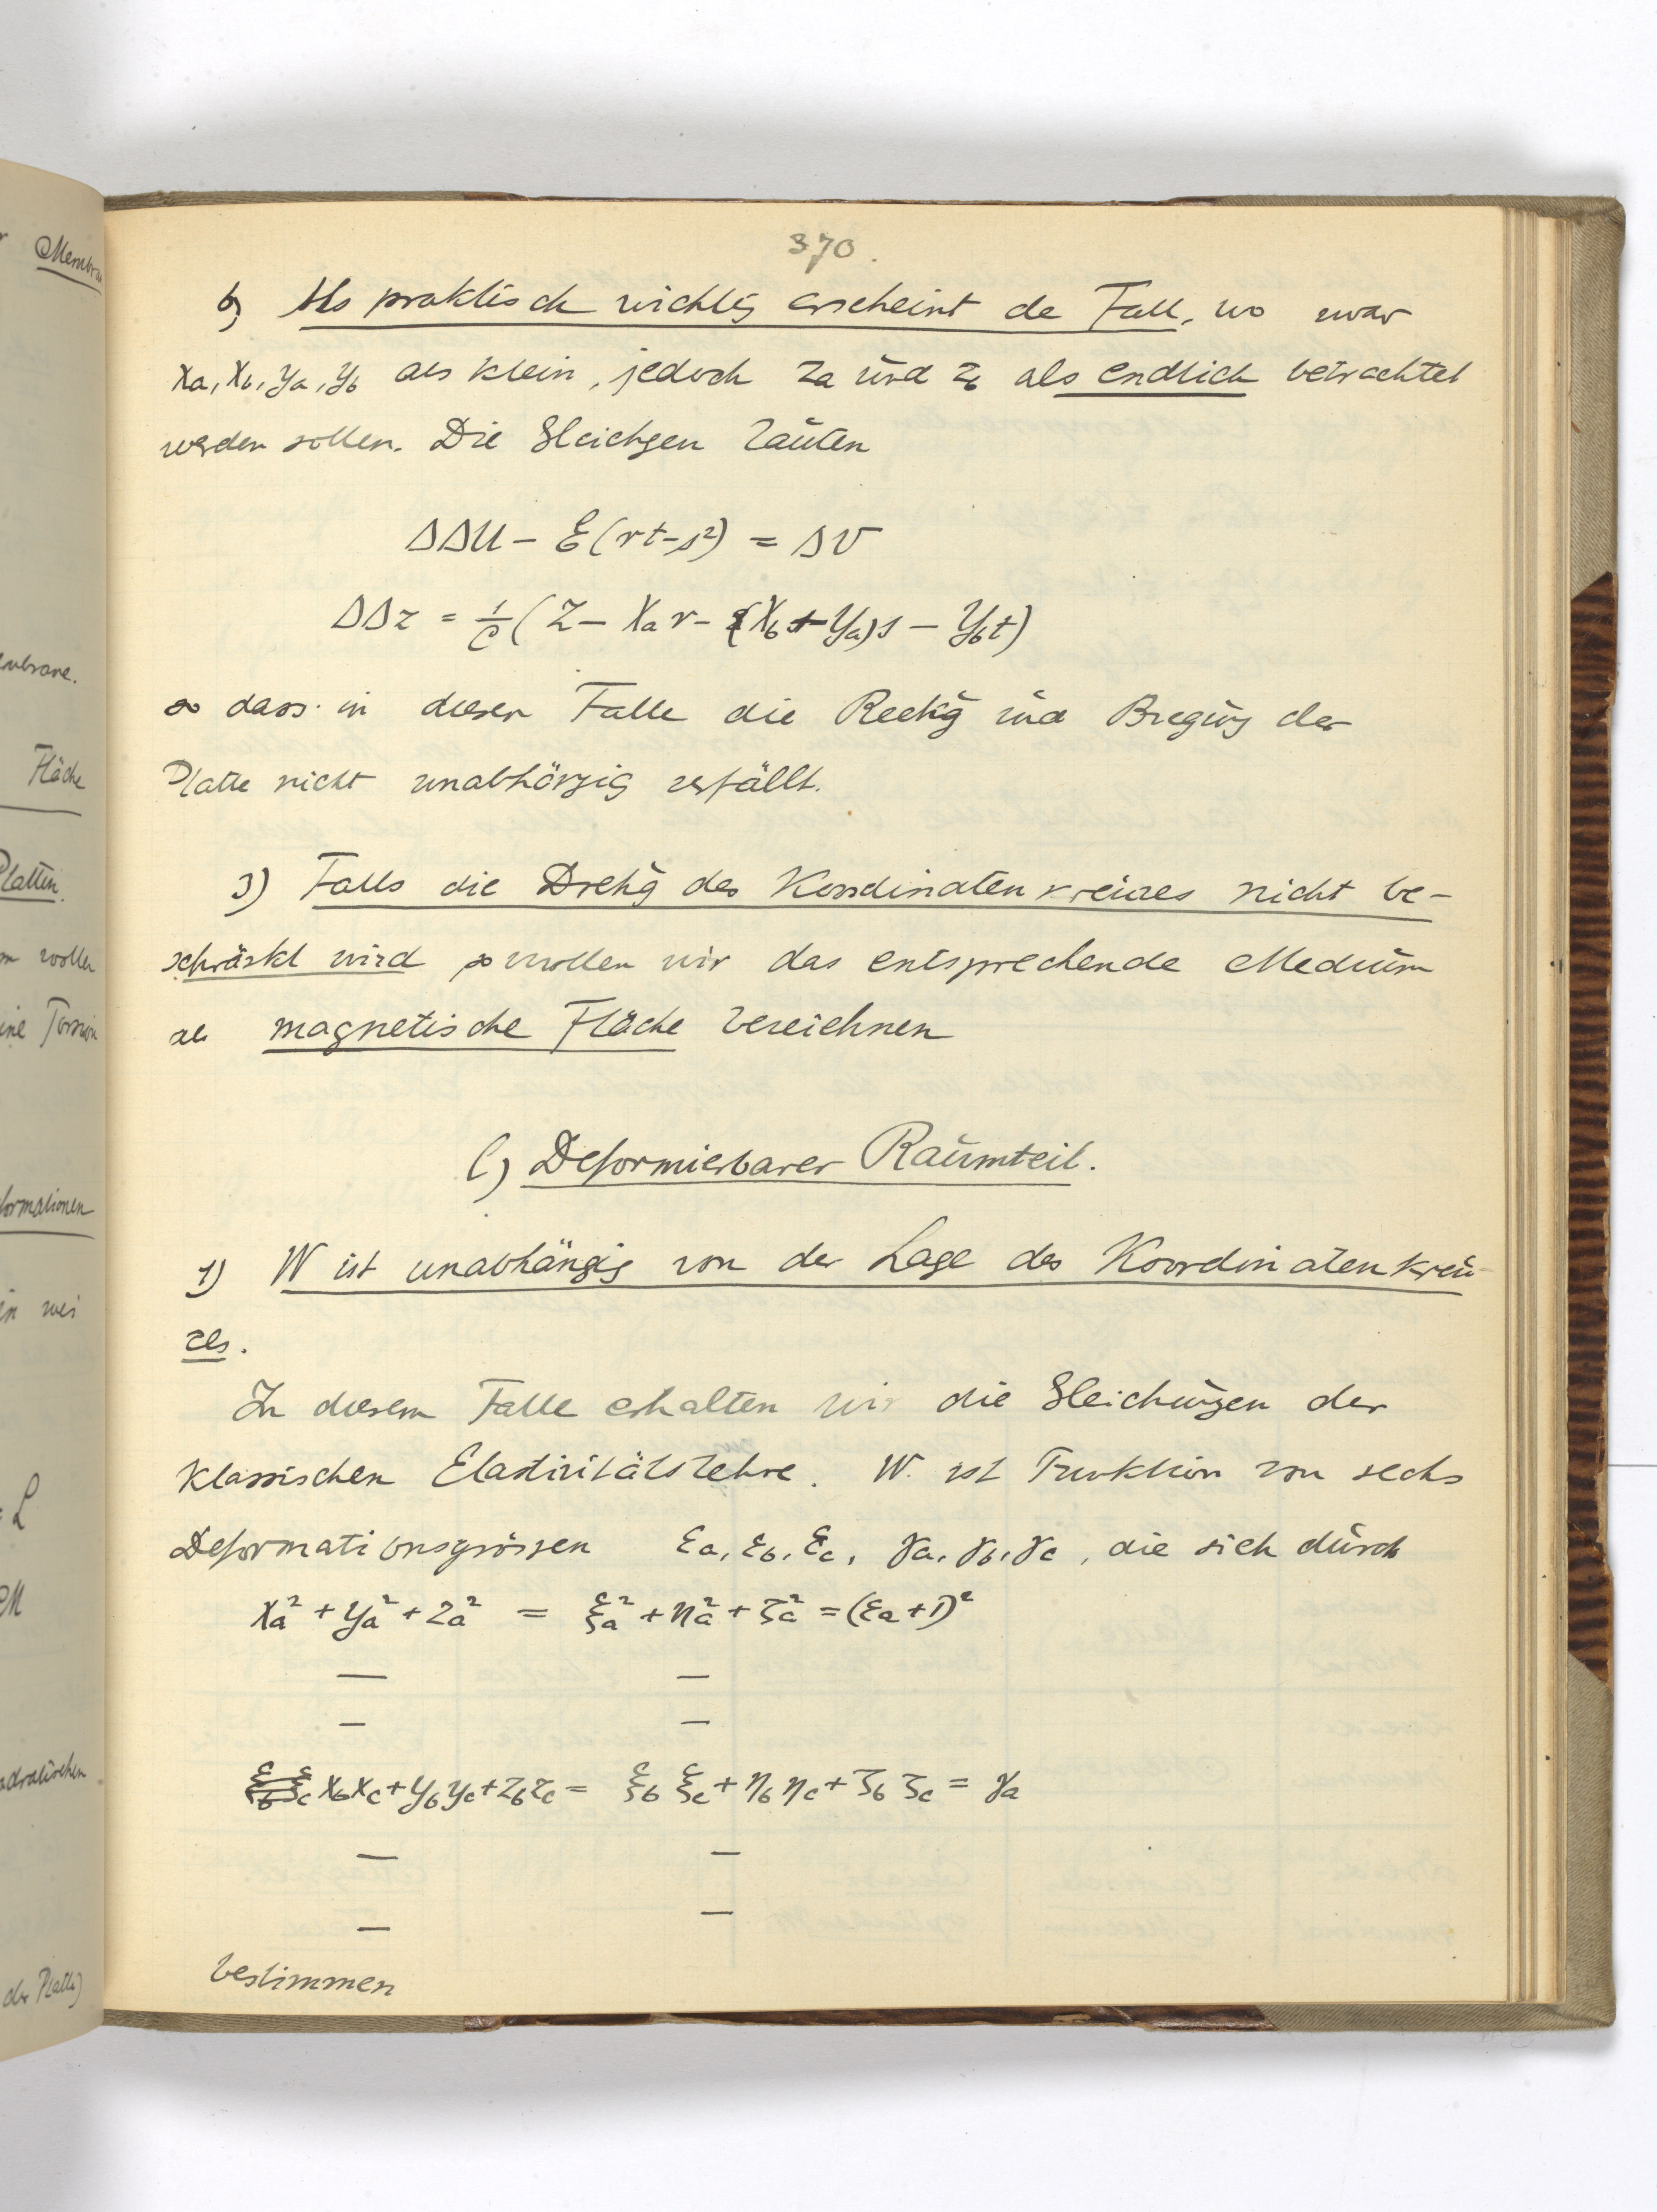 370.
b) Als praktisch wichtig erscheint de Fall, wo zwar
xa, xb, ya, yb als klein, jedoch za und zb als endlich betrachtet
werden sollen. Die Gleichgen lauten
ΔΔU − E(rt−s²) = ΔV
ΔΔz = 1/C (Z − Xa r − (Xb + Ya)s − Yb t)
so dass in diesen Falle die Reckg und Biegung der
Platte nicht unabhängig zerfällt.
3) Falls die Drehg des Koordinatenkreuzes nicht be-
schränkt wird so wollen wir das entsprechende Medium
als magnetische Fläche bezeichnen
C) Deformierbarer Raumteil.
1) W ist unabhängig von der Lage des Koordinatenkreu-
zes.
In diesem Falle erhalten wir die Gleichungen der
klassischen Elastizitätslehre. W. ist Funktion von sechs
Deformationsgrössen εa, εb, εc, γa, γb, γc, die sich durch
xa² + ya² + za² = ξa² + ηa² + ζa² = (εa+1)²
— —
— —
xbxc + ybyc + zbzc = ξb ξc + ηb ηc + ζb ζc = γa
— —
— —
bestimmen
Membra
embrane.
Fläche
Platten.
m wollen
ine Torsion
formationen
in wei
L
M
adratischen
der Platte)